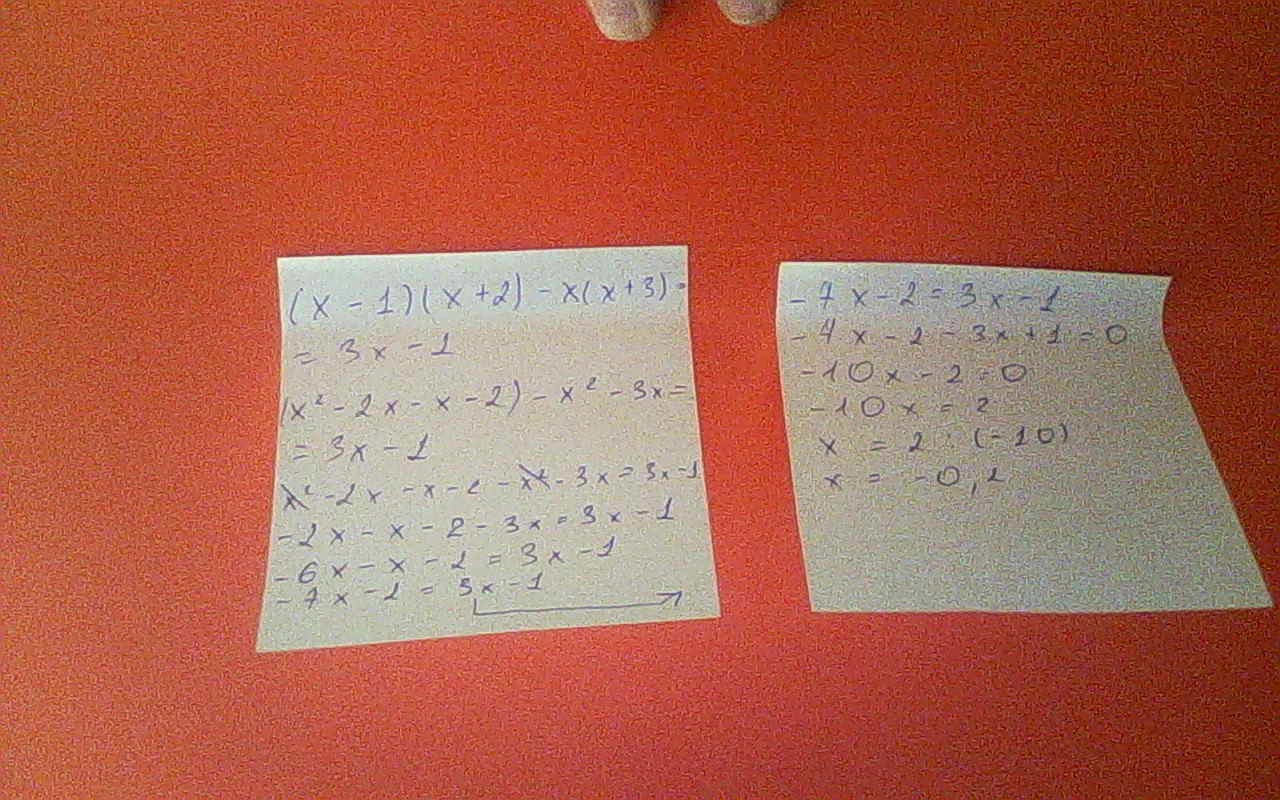 (x - 1)(x + 2) - x(x + 3) =
= 3x - 1
(x² - 2x - x - 2) - x² - 3x =
= 3x - 1
x² - 2x - x - 2 - x² - 3x = 3x - 1
- 2x - x - 2 - 3x = 3x - 1
- 6x - x - 2 = 3x - 1
- 7x - 2 = 3x - 1
- 7x - 2 = 3x - 1
- 7x - 2 - 3x + 1 = 0
- 10x - 2 = 0
- 10x = 2
x = 2 : (-10)
x = -0,2